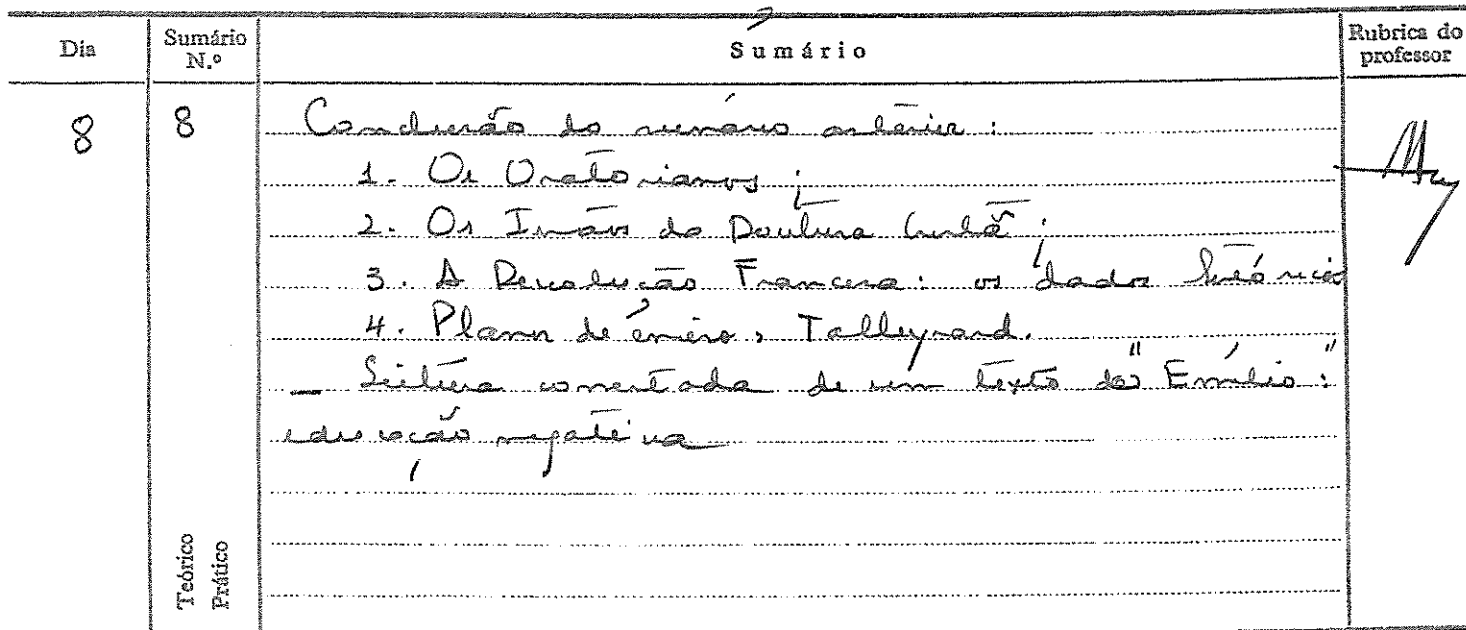 Dia Sumário N.º Sumário Rubrica do professor
8 8 Conclusão do sumário anterior :
1. Os Oratorianos ;
2. Os Irmãos da Doutrina Cristã ;
3. A Revolução Francesa : os dados históricos
4. Planos de ensino, Talleyrand.
_ Leitura comentada de um texto do "Emílio" :
educação negativa
Teórico
Prático